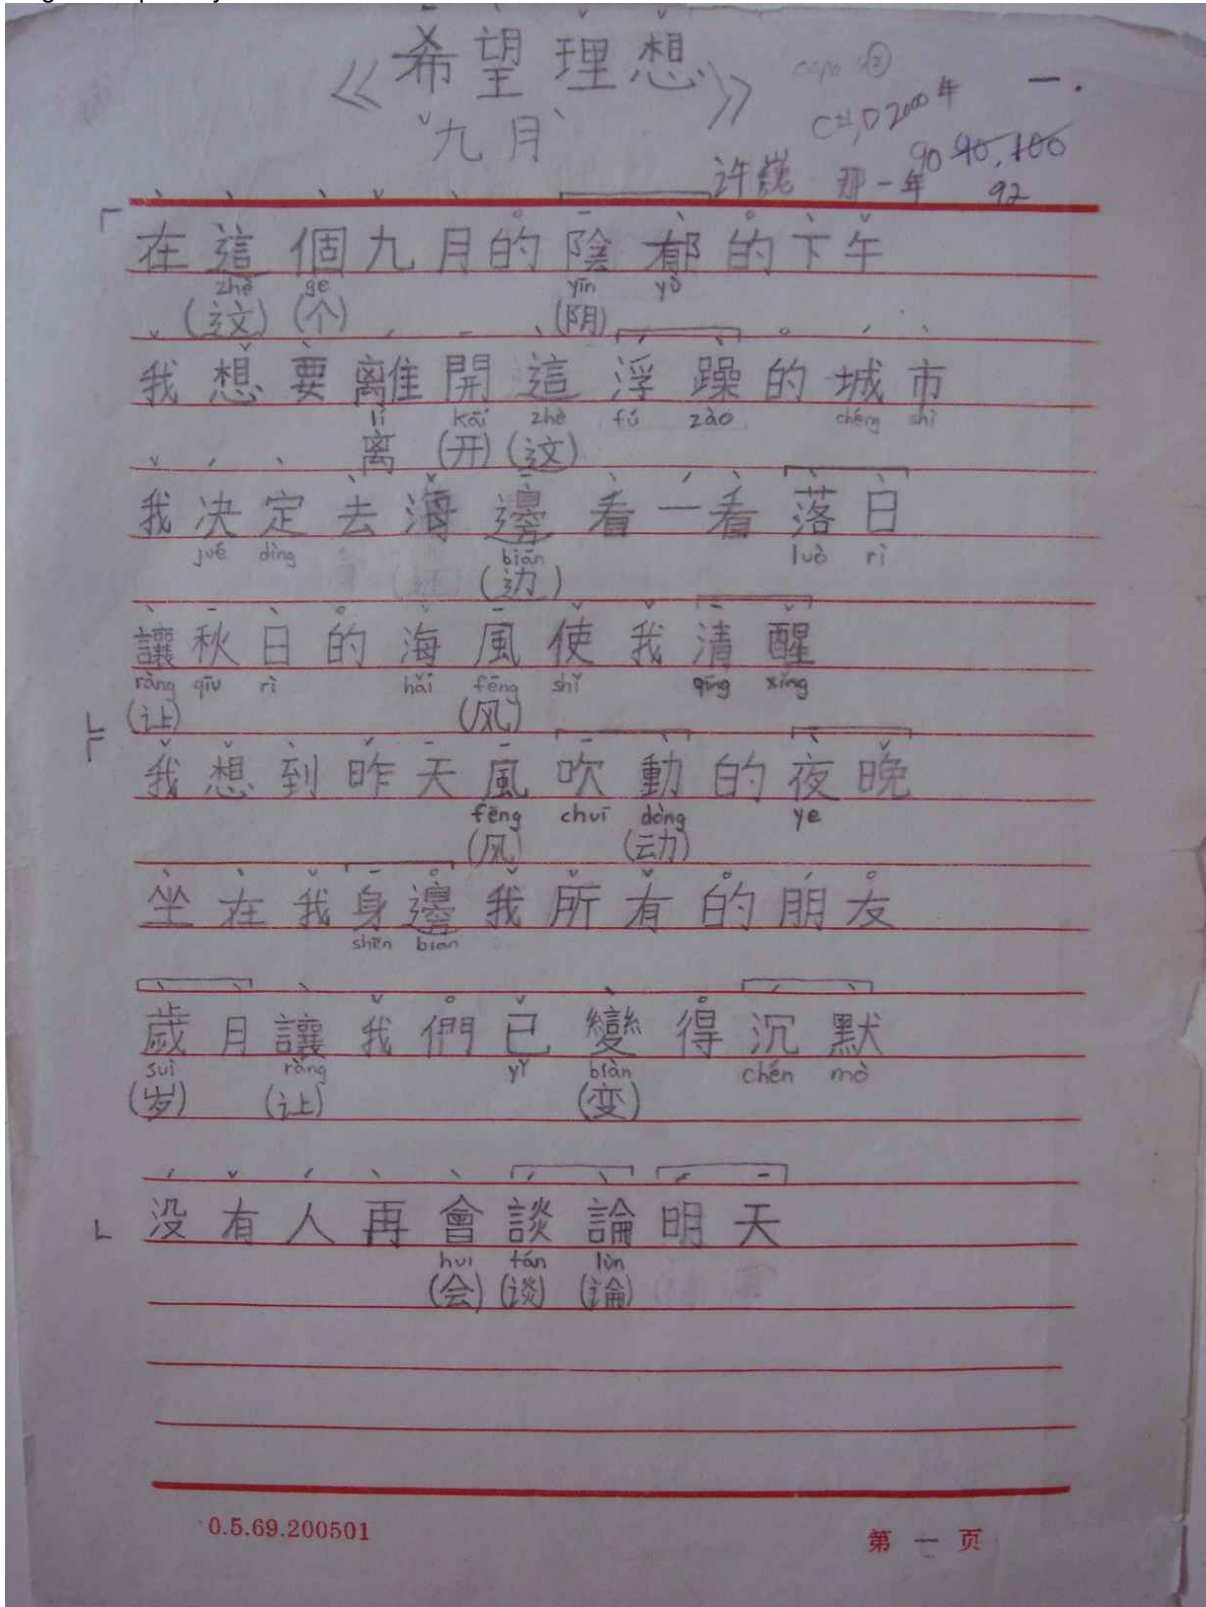 《希望理想》
capo
一.
九月
2000年
90 90, 100
許巍 那一年 92
在這個九月的陰郁的下午
zhè ge yīn yù
(这) (个) (阴)
我想要離開這浮躁的城市
lí kāi zhè fú zào chéng shì
离 (开) (这)
我决定去海邊看一看落日
jué dìng biān luò rì
(边)
讓秋日的海風使我清醒
ràng qīu rì hǎi fēng shǐ qīng xǐng
(让) (风)
我想到昨天風吹動的夜晚
fēng chuī dòng ye
(风) (动)
坐在我身邊我所有的朋友
shēn bian
歲月讓我們已變得沉默
suì ràng yǐ biàn chén mò
(岁) (让) (变)
没有人再會談論明天
hui tán lùn
(会) (谈) (论)
0.5.69.200501
第一页